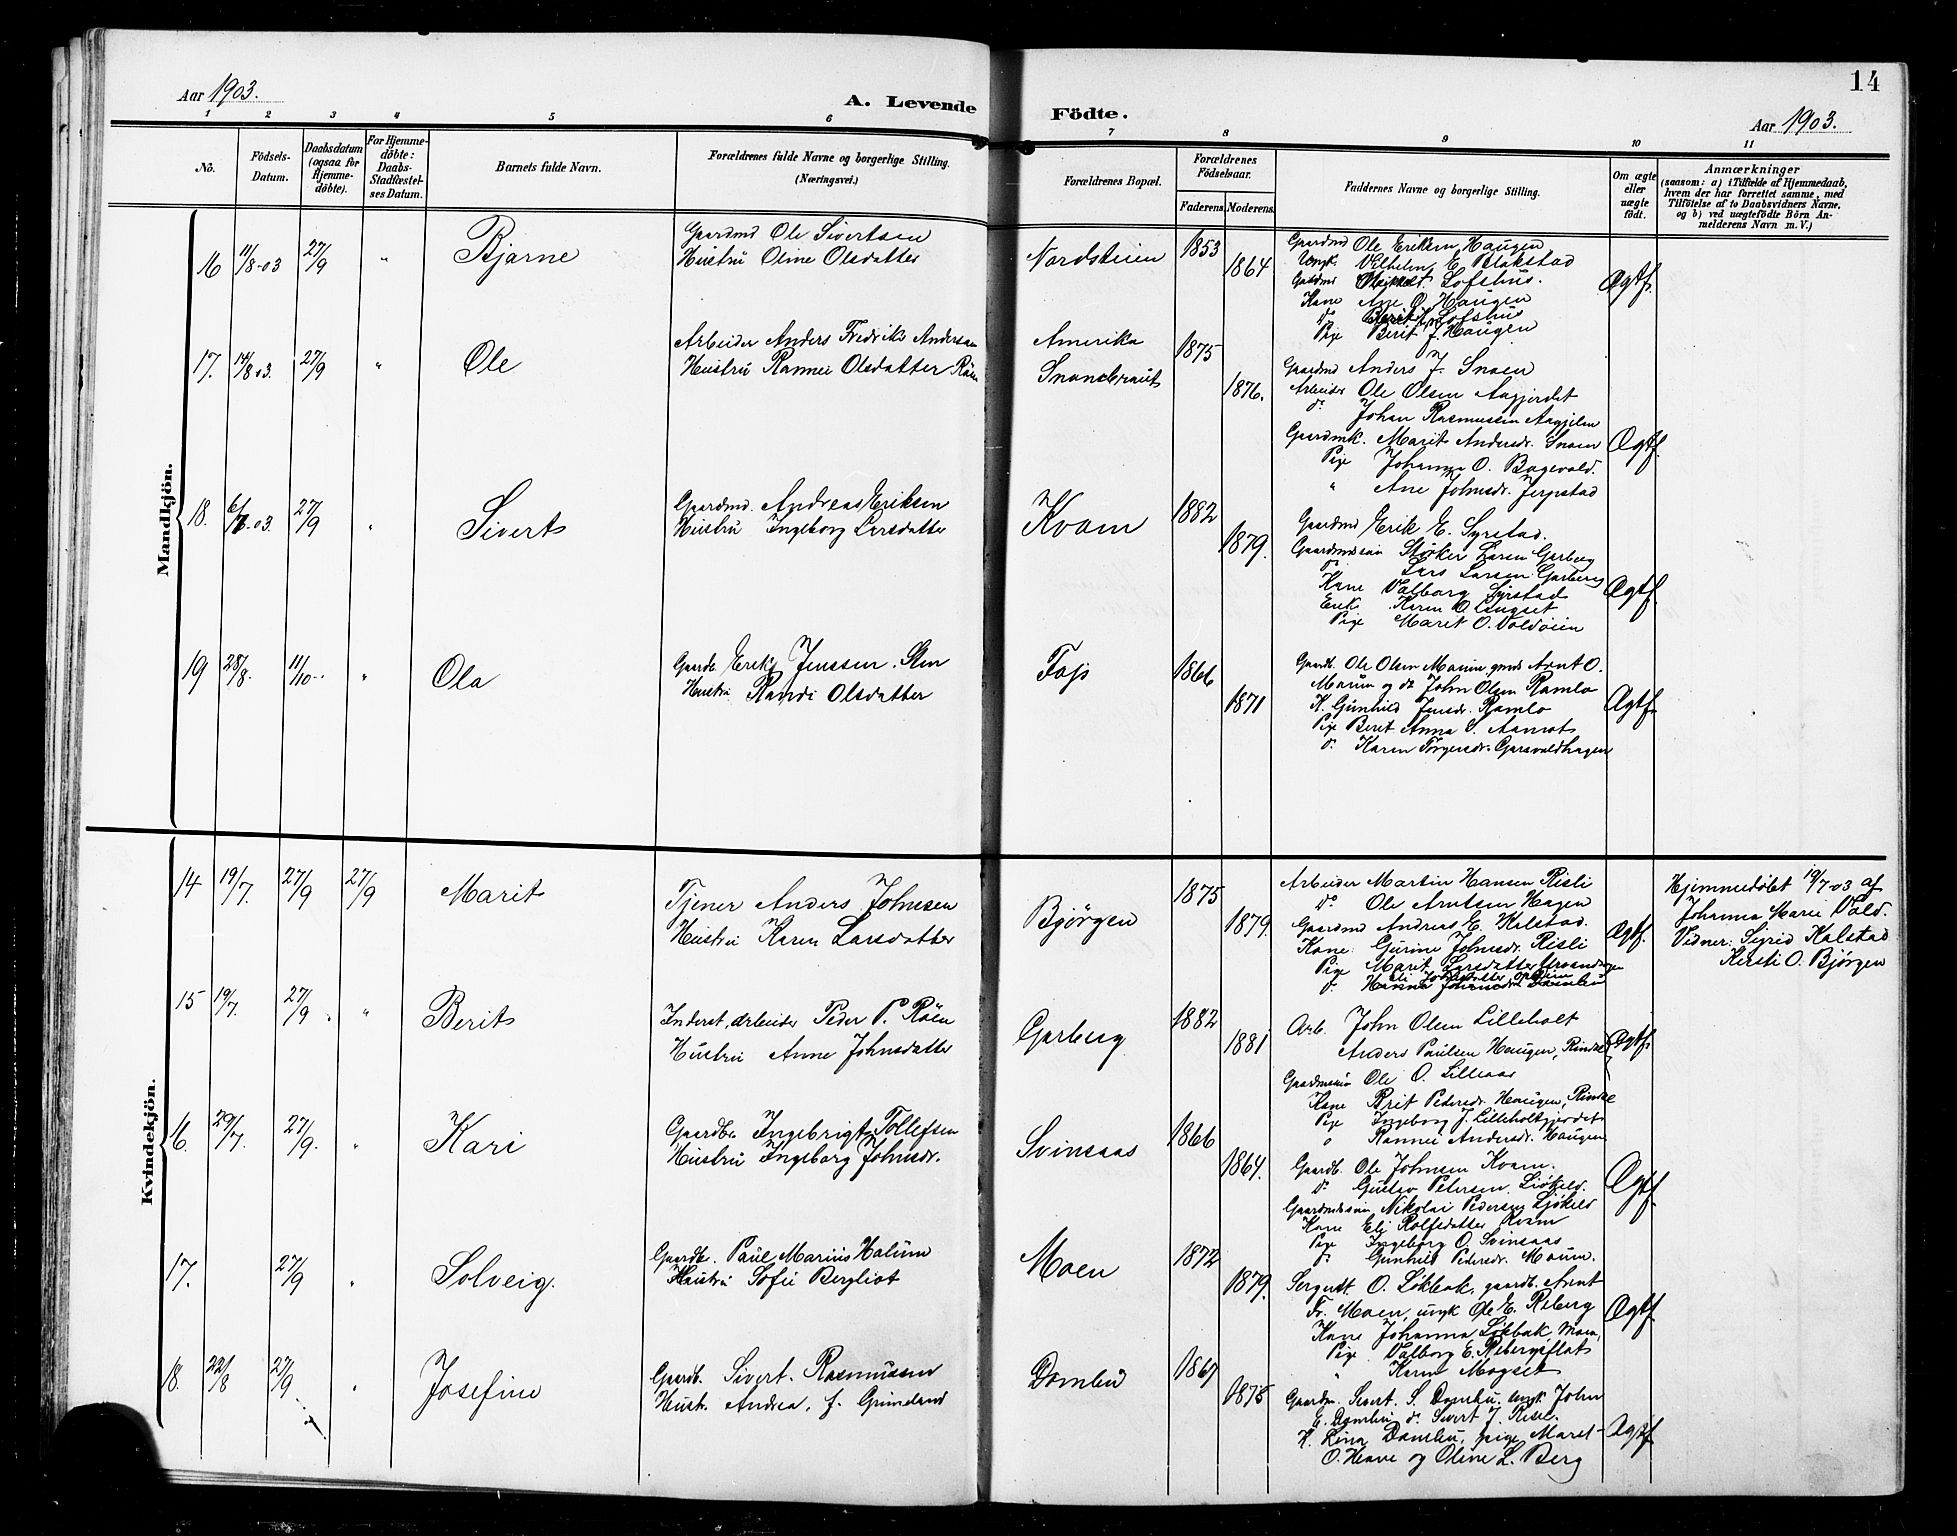 14
Aar 1903.
A. Levende Födte.
Aar 1903.
1 2 3 4 5 6 7 8 9 10 11
No.
Födsels-Datum.
Daabsdatum (ogsaa for Hjemme-döbte).
For Hjemme-döbte: Daabs-Stadfæstel-ses Datum.
Barnets fulde Navn.
Forældrenes fulde Navne og borgerlige Stilling.
(Næringsvei.)
Forældrenes Bopæl.
Forældrenes Födselsaar.
Faderens. Moderens.
Faddernes Navne og borgerlige Stilling.
Om ægte eller uægte födt.
Anmærkninger
(saasom: a) i Tilfælde af Hjemmedaab,
hvem der har forrettet samme, med
Tilföielse af to Daabsvidners Navne,
og b) ved uægtefödte Börn An-
melderens Navn m. V.)
Mandkjön.
16 11/8-03 27/9 " Bjarne
Gaardmd Ole Sivertsen
Hustru Oline Olsdatter
Nordsteien 1853 1864
Gaardmd Ole Eriksen Haugen
Ungk. Vilhelm E. Blakstad
Gaardmd Lofshus.
Kone Ane O. Haugen
do Lofshus
Pige Berit J. Haugen
Ægtf.
17. 14/8 03. 27/9 " Ole
Arbeider Anders Fredrik Andersen
Hustru Rannei Olsdatter Röen
Amerika
Snoenbraut
1875 1876.
Gaardmd Anders J. Snoen
Arbeider Ole Olsen Aagjerdet
do Johan Rasmussen
Gaardmk. Marit Andersdr. Snoen
Pige Johanna O. Bagevold.
" Ane Johnsdr. Jerpstad
Ægtf.
18. 03. 27/9 " Sivert
Gaardmd. Andreas Eriksen
Hustru Ingeborg Larsdatter
Kvam 1882 1879.
Gaardmd Erik E. Syrstad.
Gaardmdssøn Størker Larsen Garberg
do Lars Larsen Garberg
Kone Valborg Syrstad
Karen O.
Pige Marit O. Voldøien
Ægtf.
19 28/8. 11/10 " Ola
Gaardb. Erik Jenssen
Hustru Randi Olsdatter
1866 1871
Gaardb. Ole Olsen Maum, Arnt O.
Maum og do John Olsen Ramlo
K. Gunhild Jensdr. Ramlo
Pige Beret Anna
do Karen
Ægtf.
Kvindekjön.
14 19/7. 27/9 27/9 Marit
Tjener Anders Johnsen
Hustru Karen Larsdatter
Bjørgen 1875 1879.
Arbeider Martin Hansen Risli
do Ole Arntsen Hagen
Gaardmd Andreas E. Kalstad.
Kone Gurine Johnsdr. Risli
Pige Marit Larsdatter
Ægtf.
Hjemmedøbt 19/7 03 af
Johanna Marie Vold.
Vidner: Sigrid Kalstad
Kersti O. Bjørgen
15 19/7. 27/9. " Berit
Inderst, arbeider Peder P. Röen
Hustru Anne Johnsdatter
Garberg 1882 1881
Arb. John Olsen Lilleholt
Anders Paulsen Haugen, Rindal
Gaardmssøn Ole O. Lilleaas
Kone Brit Pedersdr. Haugen, Rindal
Pige Ingeborg J. Lilleholtgjerdet
" Rannei Andersdr. Haugen
Ægtf.
16. 29/7. 27/9. " Kari
Gaardbr Ingebrigt Tollefsen
Hustru Ingeborg Johnsdr.
Svinsaas 1866 1864.
Gaardb. Ole Johnsen Kvam.
do Gustav Petersen
Gaardmdssøn Nikolai Pedersen
Kone Eli Rolfsdatter Kvam
Pige Ingeborg O. Svinsaas
do Gunhild Pedersdr. Maum.
Ægtf
17. 27/9 " Solveig.
Gaardbr. Paul Marius Halum
Hustru Sofie Bergliot
Moen 1872 1879.
Sergeant O. Løkbak, gaardb. Arnt
Fr. Moen, ungk Ole E. Reberg
Kone Johanna Løkbak, Moen,
Pige Valborg E. Rebergsflot
" Karen Mogset
Ægtf
18. 22/8 27/9 " Josefine
Gaardb. Sivert Rasmussen
Hustr. Andrea, f. Grindland
Domlu 1867 1875
Gaardm. Sivert S. Domlu, ungk. John
E. Domlu do Sivert J.
K. Lina Domlu, pige Maret
O. Have og Oline L. Berg
Ægtf